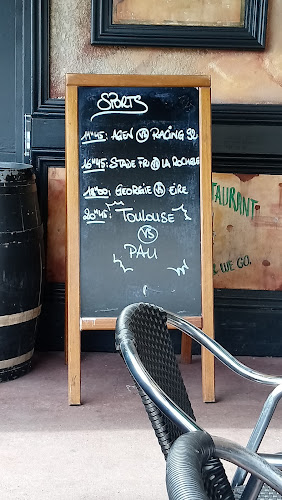 SPORTS
14H45: AGEN VS RACING 92
16H45: STADE FR VS LA ROCHELLE
18H00: GEORGIE VS EIRE
20H45: TOULOUSE
VS
PAU
TAURANT
& WE GO.